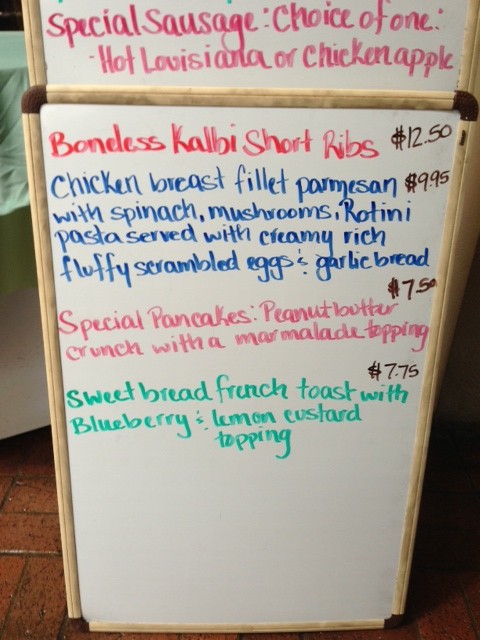 Special Sausage: Choice of one:
-Hot Louisiana or Chicken apple
Boneless Kalbi Short Ribs $12.50
Chicken breast fillet parmesan $9.95
with spinach, mushrooms, Rotini
pasta served with creamy rich
fluffy scrambled eggs & garlic bread
$7.50
Special Pancakes: Peanutbutter
crunch with a marmalade topping
$7.75
Sweet bread french toast with
Blueberry & lemon custard
topping